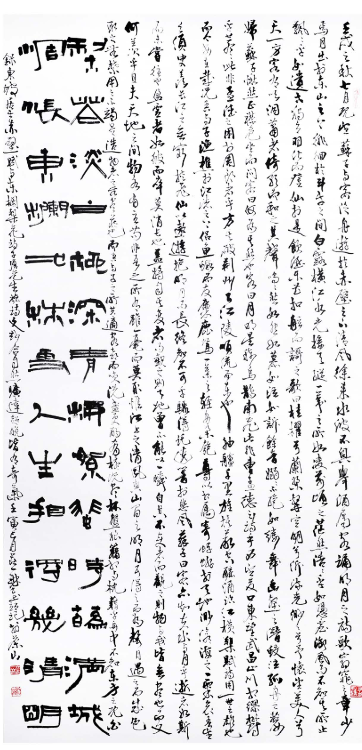 壬戌之秋七月既望蘇子與客泛舟遊於赤壁之下清風徐來水波不興舉酒屬客誦明月之詩歌窈窕之章少
焉月出於東山之上徘徊於斗牛之間白露橫江水光接天縱一葦之所如凌萬頃之茫然浩浩乎如馮虛御風而不知其所止
飄飄乎如遺世獨立羽化而登仙於是飲酒樂甚扣舷而歌之歌曰桂櫂兮蘭槳擊空明兮溯流光渺渺兮予懷望美人兮
天一方客有吹洞簫者倚歌而和之其聲嗚嗚然如怨如慕如泣如訴餘音嫋嫋不絕如縷舞幽壑之潛蛟泣孤舟之嫠
婦蘇子愀然正襟危坐而問客曰何為其然也客曰月明星稀烏鵲南飛此非曹孟德之詩乎西望夏口東望武昌山川相繆鬱
乎蒼蒼此非孟德之困於周郎者乎方其破荊州下江陵順流而東也舳艫千里旌旗蔽空釃酒臨江橫槊賦詩固一世之雄也
而今安在哉況吾與子漁樵於江渚之上侶魚蝦而友麋鹿駕一葉之扁舟舉匏樽以相屬寄蜉蝣於天地渺滄海之一粟哀吾生
之須臾羨長江之無窮挾飛仙以遨遊抱明月而長終知不可乎驟得託遺響於悲風蘇子曰客亦知夫水與月乎逝者如斯
而未嘗往也盈虛者如彼而卒莫消長也蓋將自其變者而觀之則天地曾不能以一瞬自其不變者而觀之則物與我皆無盡也而又
何羨乎且夫天地之間物各有主苟非吾之所有雖一毫而莫取惟江上之清風與山間之明月耳得之而為聲目遇之而成色
取之無禁用之不竭是造物者之無盡藏也而吾與子之所共適客喜而笑洗盞更酌肴核既盡杯盤狼籍相與枕藉乎舟中不知東方之既白
梨花淡白柳深青柳絮蜚時蘤滿城
惆悵東欄一株雪人生看得幾清明
錄東坡居士赤壁賦與東欄梨花詩